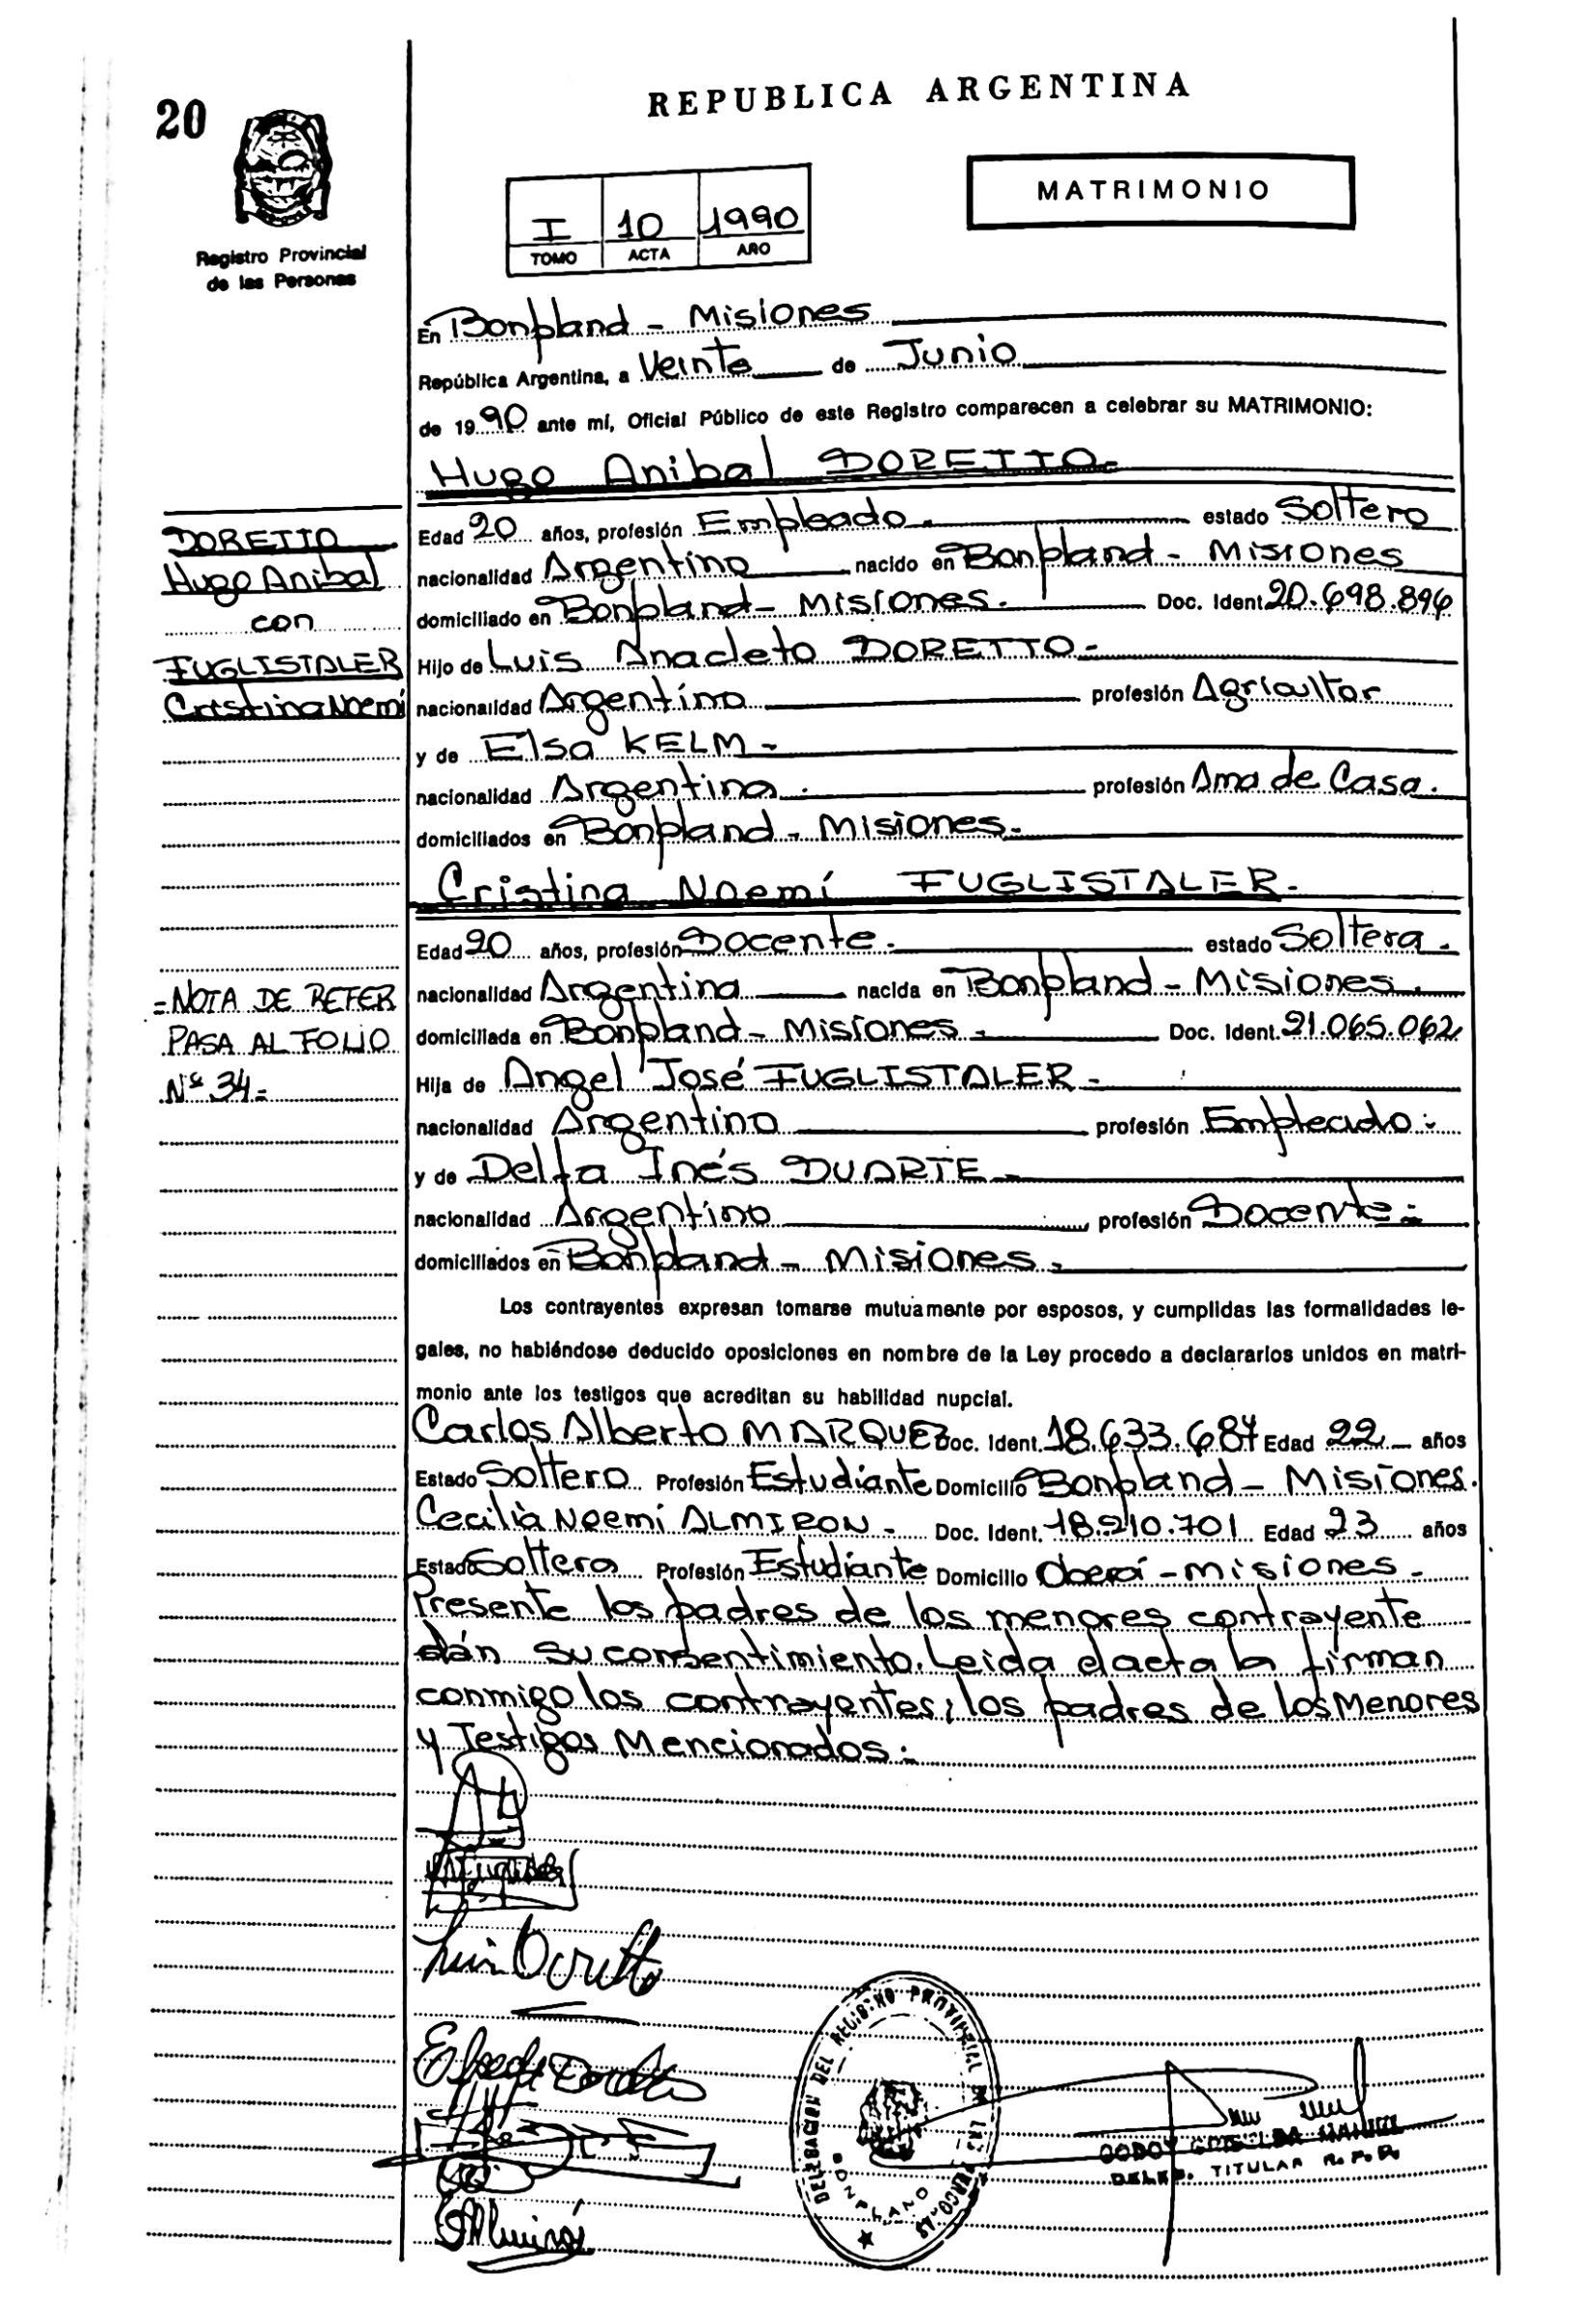 20
REPUBLICA ARGENTINA
MATRIMONIO
I 10 1990
TOMO ACTA AÑO
Registro Provincial
de las Personas
En Bonpland - Misiones
República Argentina, a Veinte de Junio
de 1990 ante mí, Oficial Público de este Registro comparecen a celebrar su MATRIMONIO:
Hugo Anibal DORETTO-
DORETTO
Hugo Anibal
con
FUGLISTALER
Cristina Noemí
Edad 20 años, profesión Empleado. estado Soltero
nacionalidad Argentino nacido en Bonpland - Misiones
domiciliado en Bonpland - Misiones. Doc. Ident. 20.698.896
Hijo de Luis Anacleto DORETTO-
nacionalidad Argentino profesión Agricultor
y de Elsa KELM-
nacionalidad Argentina. profesión Ama de Casa.
domiciliados en Bonpland - Misiones-
Cristina Noemí FUGLISTALER-
Edad 20 años, profesión Docente. estado Soltera.
nacionalidad Argentina nacida en Bonpland - Misiones.
domiciliada en Bonpland - Misiones- Doc. Ident. 21.065.062
Hija de Angel José FUGLISTALER-
nacionalidad Argentino profesión Empleado-
y de Delfa Inés DUARTE-
nacionalidad Argentino profesión Docente-
domiciliados en Bonpland - Misiones-
- NOTA DE REFER
PASA AL FOLIO
Nº 34-
Los contrayentes expresan tomarse mutuamente por esposos, y cumplidas las formalidades le-
gales, no habiéndose deducido oposiciones en nombre de la Ley procedo a declararlos unidos en matri-
monio ante los testigos que acreditan su habilidad nupcial.
Carlos Alberto MARQUEZ Doc. Ident. 18.633.684 Edad 22 años
Estado Soltero Profesión Estudiante Domicilio Bonpland - Misiones.
Cecilia Noemí ALMIRON- Doc. Ident. 18.210.701 Edad 23 años
Estado Soltera Profesión Estudiante Domicilio Oberá - misiones-
Presente los padres de los menores contrayente
dán su consentimiento. Leida el acta la firman
conmigo los contrayentes, los padres de los Menores
y Testigos Mencionados-
Luis Doretto
DELEGACION DEL REGISTRO PROVINCIAL DE LAS PERSONAS
BONPLAND
GODOY GRISELDA
DELEG. TITULAR R. P. P.